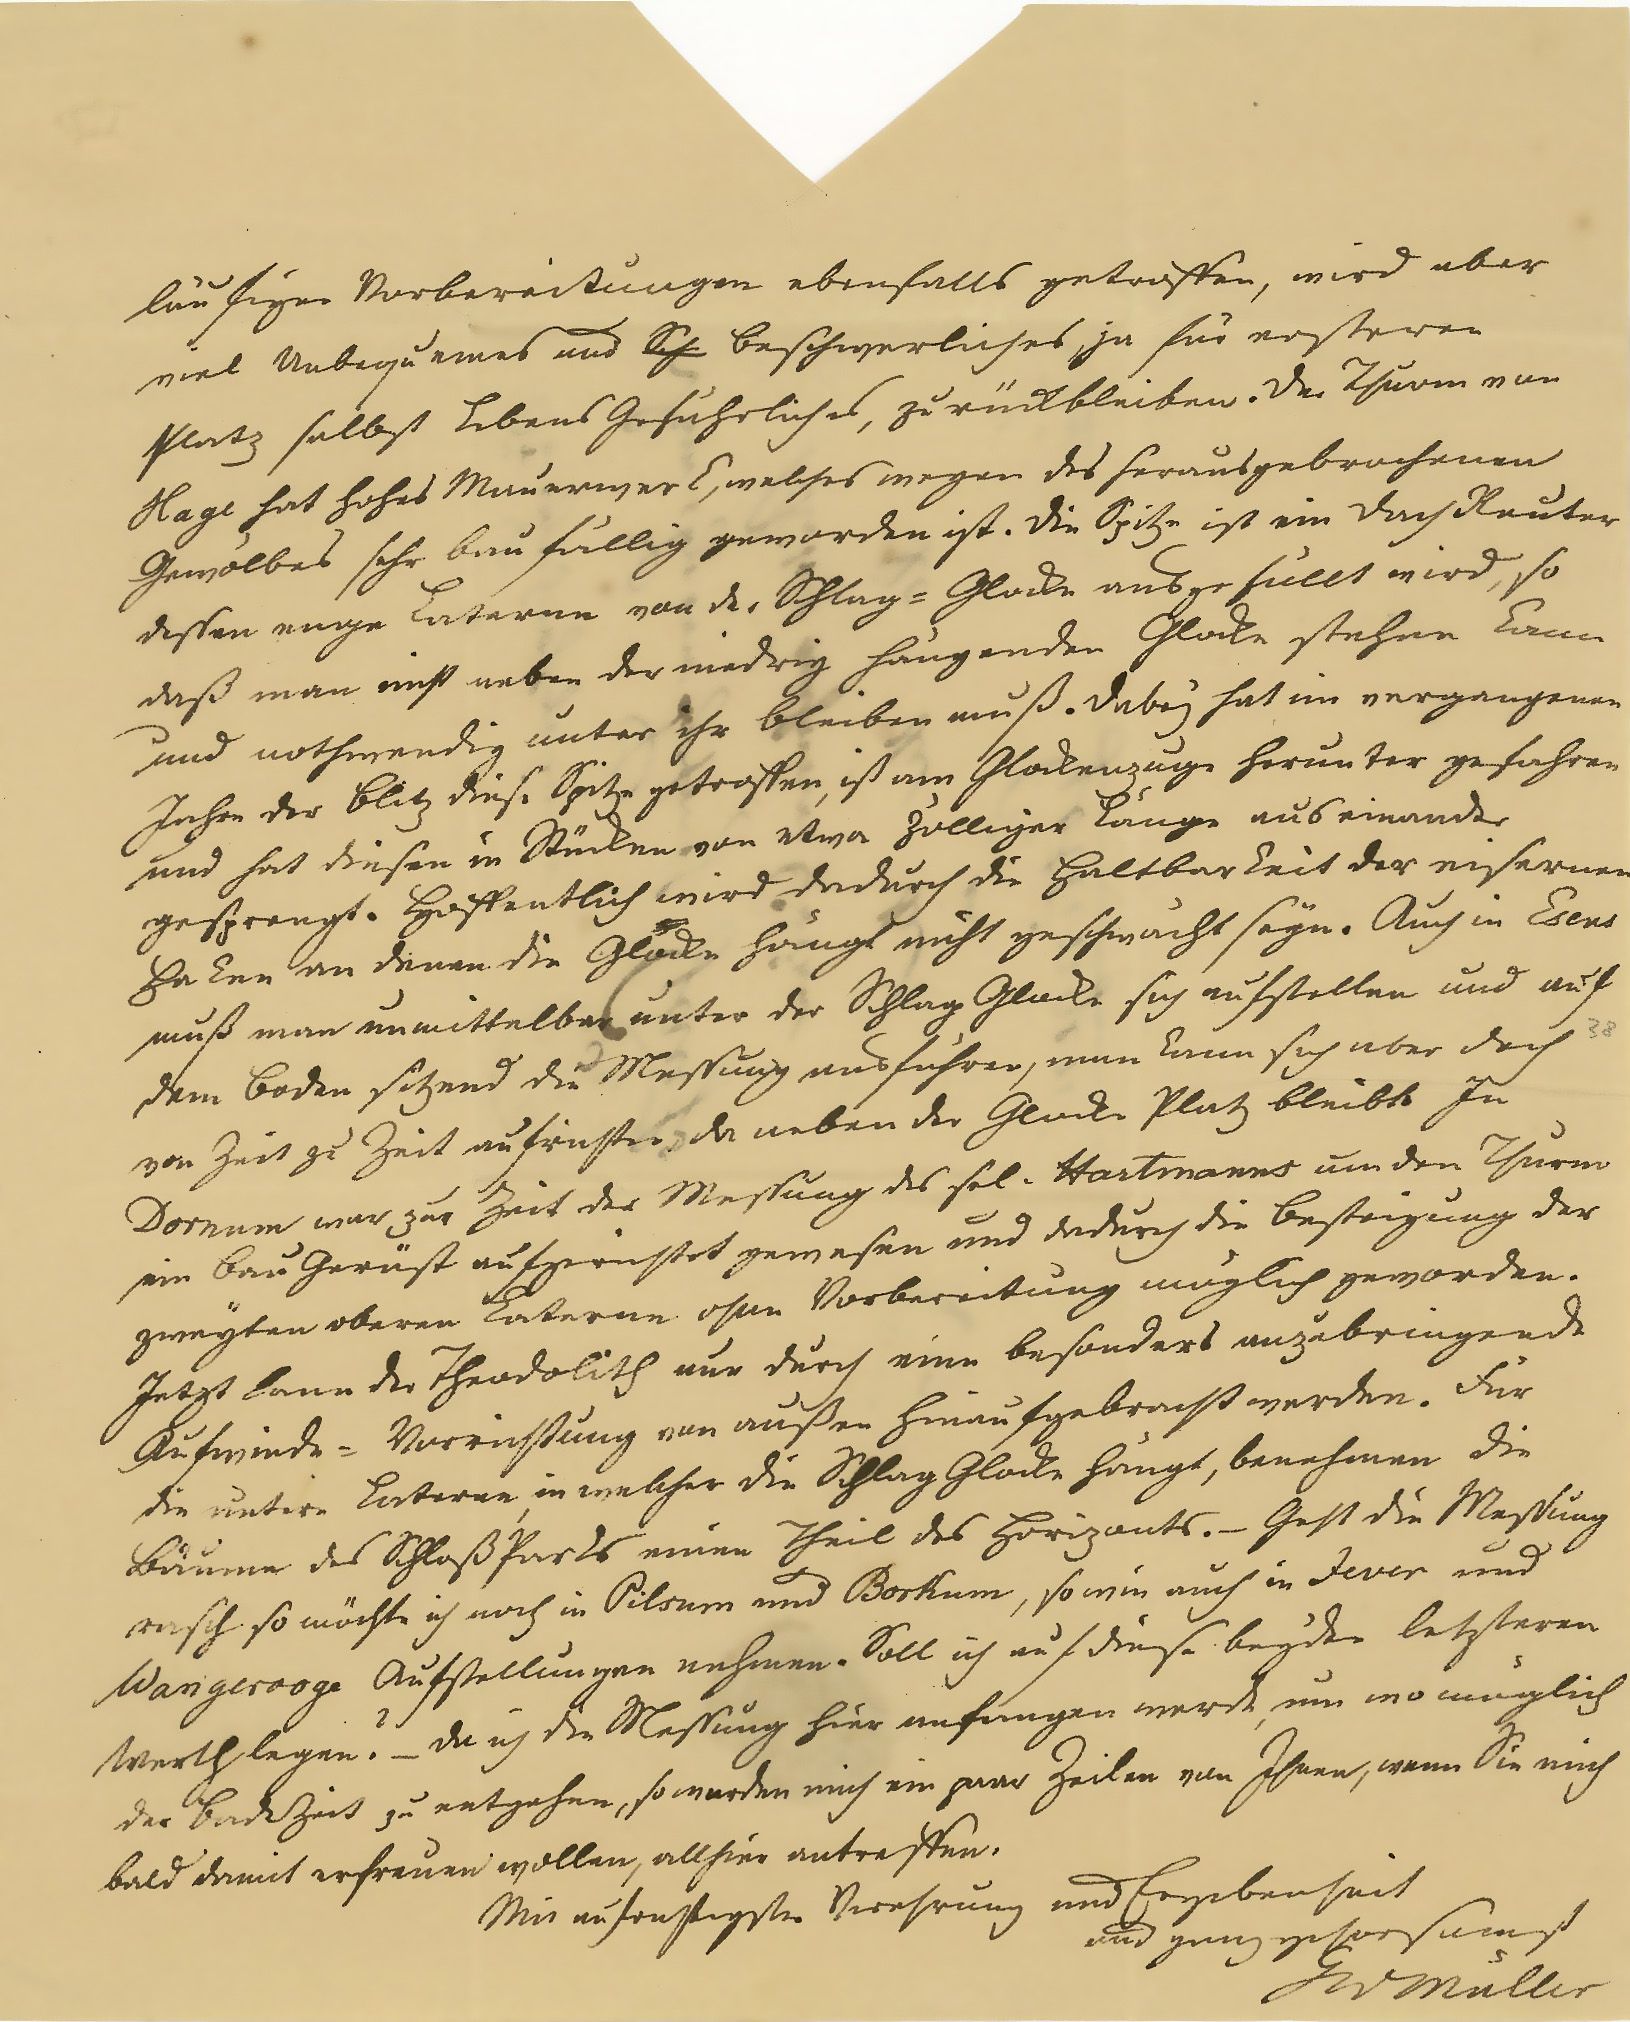 läufigen Vorbereitungen ebenfalls getroffen, wird aber
viel Unbequemes und Sch beschwerliches, ja für ersteren
Platz selbst LebensGefährliches, zurückbleiben. Der Thurm von
Hage hat hohes Mauerwerk, welches wegen des herausgebrochenen
Gewölbes sehr baufällig geworden ist. Die Spitze ist ein DachReuter
dessen enge Laterne von der Schlag=Glocke ausgefüllt wird, so
daß man nicht neben der niedrig hängenden Glocke stehen kann
und nothwendig unter ihr bleiben muß. Dabey hat im vergangenen
Jahre der Blitz diese Spitze getroffen, ist am Glockenzuge herunter gefahren
und hat diesen in Stücken von etwa zölliger Länge auseinander
gesprengt. Hoffentlich wird dadurch die Haltbarkeit der eisernen
Haken an denen die Glocke hängt nicht geschwächt seyn. Auch in Esens
muß man unmittelbar unter der SchlagGlocke sich aufstellen und auf
38
dem Boden sitzend die Messung ausführen, man kann sich aber doch
von Zeit zu Zeit aufrichten, da neben der Glocke Platz bleibt. In
Dornum war zur Zeit der Messung des sel. Hartmanns um den Thurm
ein BauGerüst aufgerichtet gewesen und dadurch die Besteigung der
zweyten oberen Laterne ohne Vorbereitung möglich geworden.
Jetzt kann der Theodolith nur durch eine besonders anzubringende
Aufwinde=Vorrichtung von außen hinaufgebracht werden. Für
die untere Laterne, in welcher die SchlagGlocke hängt, benehmen die
Bäume des SchloßParks einen Theil des Horizonts. – Geht die Messung
rasch so möchte ich noch in Pilsum und Borkum, so wie auch in Jever und
Wangerooge Aufstellungen nehmen. Soll ich auf diese beyden letzteren
Werth legen? – Da ich die Messung hier anfangen werde, um wo möglich
der BadeZeit zu entgehen, so würden mich ein paar Zeilen von Ihnen, wenn Sie mich
bald damit erfreuen wollen, allhier antreffen.
Mit aufrichtigster Verehrung und Ergebenheit
und ganz gehorsamst
GWMüller